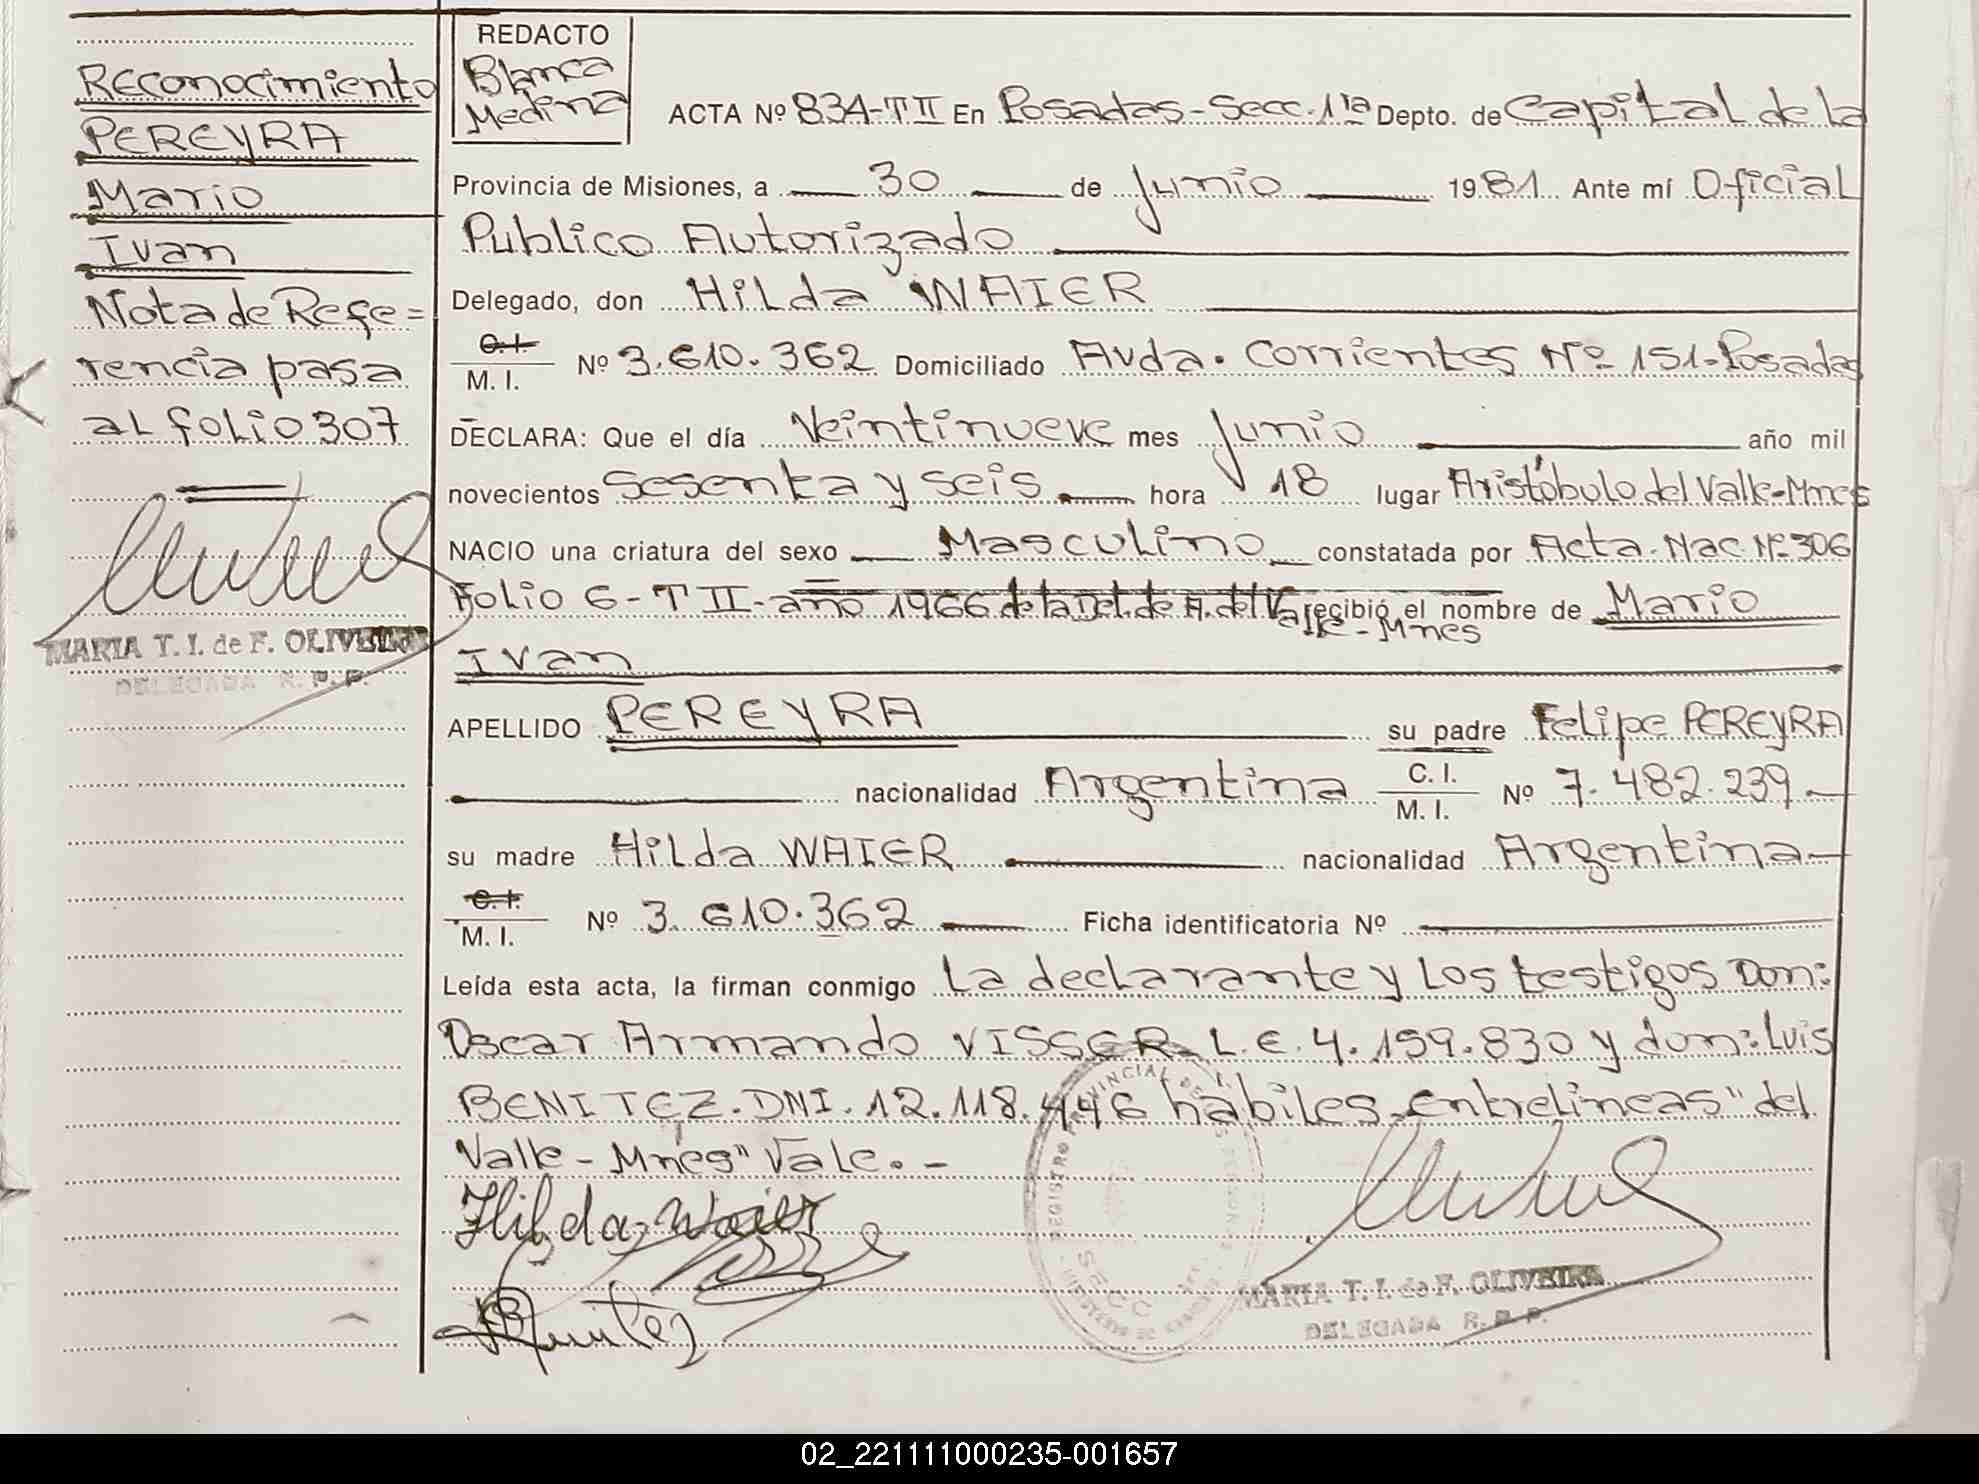 Reconocimiento
PEREYRA
Mario
Ivan
Nota de Refe=
rencia pasa
al folio 307
MARIA T. I. de F. OLIVEIRA
DELEGADA R. P. P.
REDACTO
Blanca
Medina
ACTA Nº 834-TII En Posadas-Secc.1ra Depto. de Capital de la
Provincia de Misiones, a 30 de Junio 1981. Ante mí Oficial
Publico Autorizado
Delegado, don Hilda WAIER
C.I.
M. I. Nº 3.610.362 Domiciliado Avda. Corrientes Nº 151-Posadas
DECLARA: Que el día Veintinueve mes Junio año mil
novecientos sesenta y seis hora 18 lugar Aristóbulo del Valle-Mnes
NACIO una criatura del sexo Masculino constatada por Acta. Nac. Nº 306
Folio 6-TII-año 1966 de la Del. de A. del Va recibió el nombre de Mario
lle-Mnes
Ivan
APELLIDO PEREYRA su padre Felipe PEREYRA
nacionalidad Argentina C. I.
M. I. Nº 7.482.239
su madre Hilda WAIER nacionalidad Argentina
C.I.
M. I. Nº 3.610.362 Ficha identificatoria Nº
Leída esta acta, la firman conmigo La declarante y Los testigos Don:
Oscar Armando VISSER-L.E.4.159.830 y don: Luis
BENITEZ.DNI.12.118.446 hábiles-Entrelíneas "del
Valle-Mnes" Vale.-
Hilda Waier
Benitez
REGISTRO PROVINCIAL DE
SECC
MARIA T. I. de F. OLIVEIRA
DELEGADA R. P. P.
02_221111000235-001657